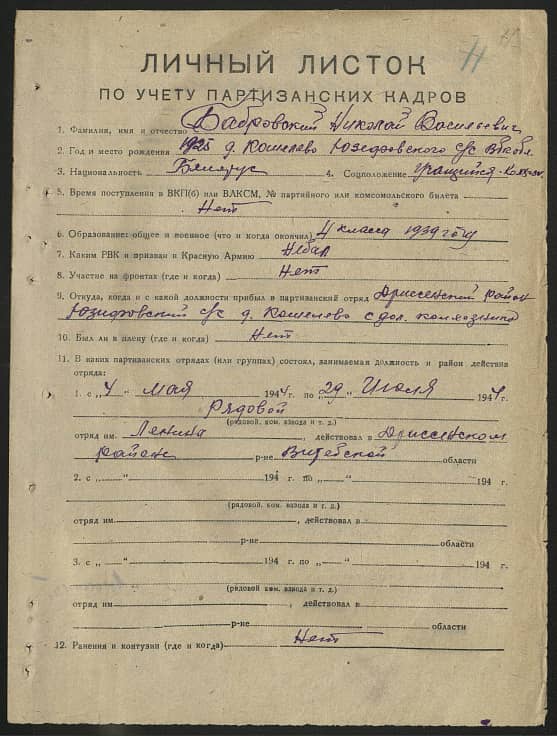 11
ЛИЧНЫЙ ЛИСТОК
ПО УЧЕТУ ПАРТИЗАНСКИХ КАДРОВ
1. Фамилия, имя и отчество Бабровский Николай Васильевич
2. Год и место рождения 1925 д. Кошелево Юзефовского с/с
3. Национальность Белярус 4. Соцположение
5. Время поступления в ВКП(б) или ВЛКСМ, № партийного или комсомольского билета
Нет
6. Образование: общее и военное (что и когда окончил) 4 класса 1939 году
7. Каким РВК и призван в Красную Армию Небал
8. Участие на фронтах (где и когда) Нет
9. Откуда, когда и с какой должности прибыл в партизанский отряд Дриссенский район
Юзефовский с/с д. Кошелево с дол. колхозника
10. Был ли в плену (где и когда) Нет
11. В каких партизанских отрядах (или группах) состоял, занимаемая должность и район действия
отряда:
1. с „4" мая 1944 г. по „29" Июля 1944 г.
Рядовой
(рядовой, ком. взвода и т. д.)
отряд им. Ленина, действовал в Дриссенском
районе р-не Витебской области
2. с „ " 194 г. по „ " 194 г.
(рядовой, ком. взвода и т. д.)
отряд им. , действовал в
р-не области
3. с „ " 194 г. по „ " 194 г.
(рядовой ком. взвода и т. д.)
отряд им. , действовал в
р-не области
12. Ранения и контузии (где и когда) Нет